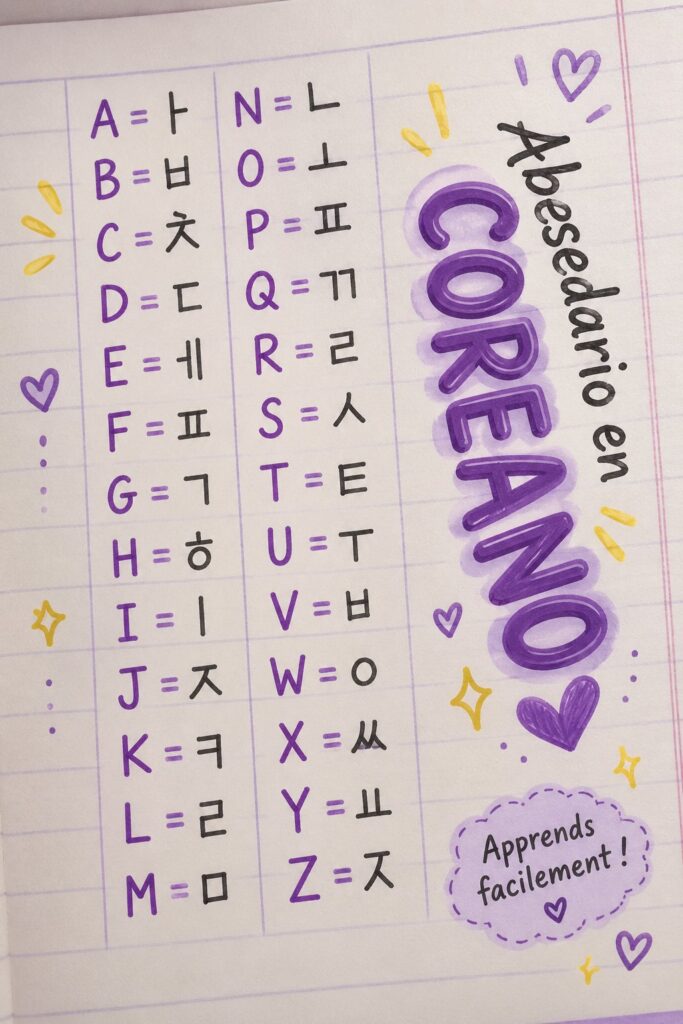 A = ㅏ
B = ㅂ
C = ㅊ
D = ㄷ
E = ㅔ
F = ㅍ
G = ㄱ
H = ㅎ
I = ㅣ
J = ㅈ
K = ㅋ
L = ㄹ
M = ㅁ
N = ㄴ
O = ㅗ
P = ㅍ
Q = ㄲ
R = ㄹ
S = ㅅ
T = ㅌ
U = ㅜ
V = ㅂ
W = ㅇ
X = ㅆ
Y = ㅛ
Z = ㅈ
Abesedario en
COREANO
Apprends
facilement !